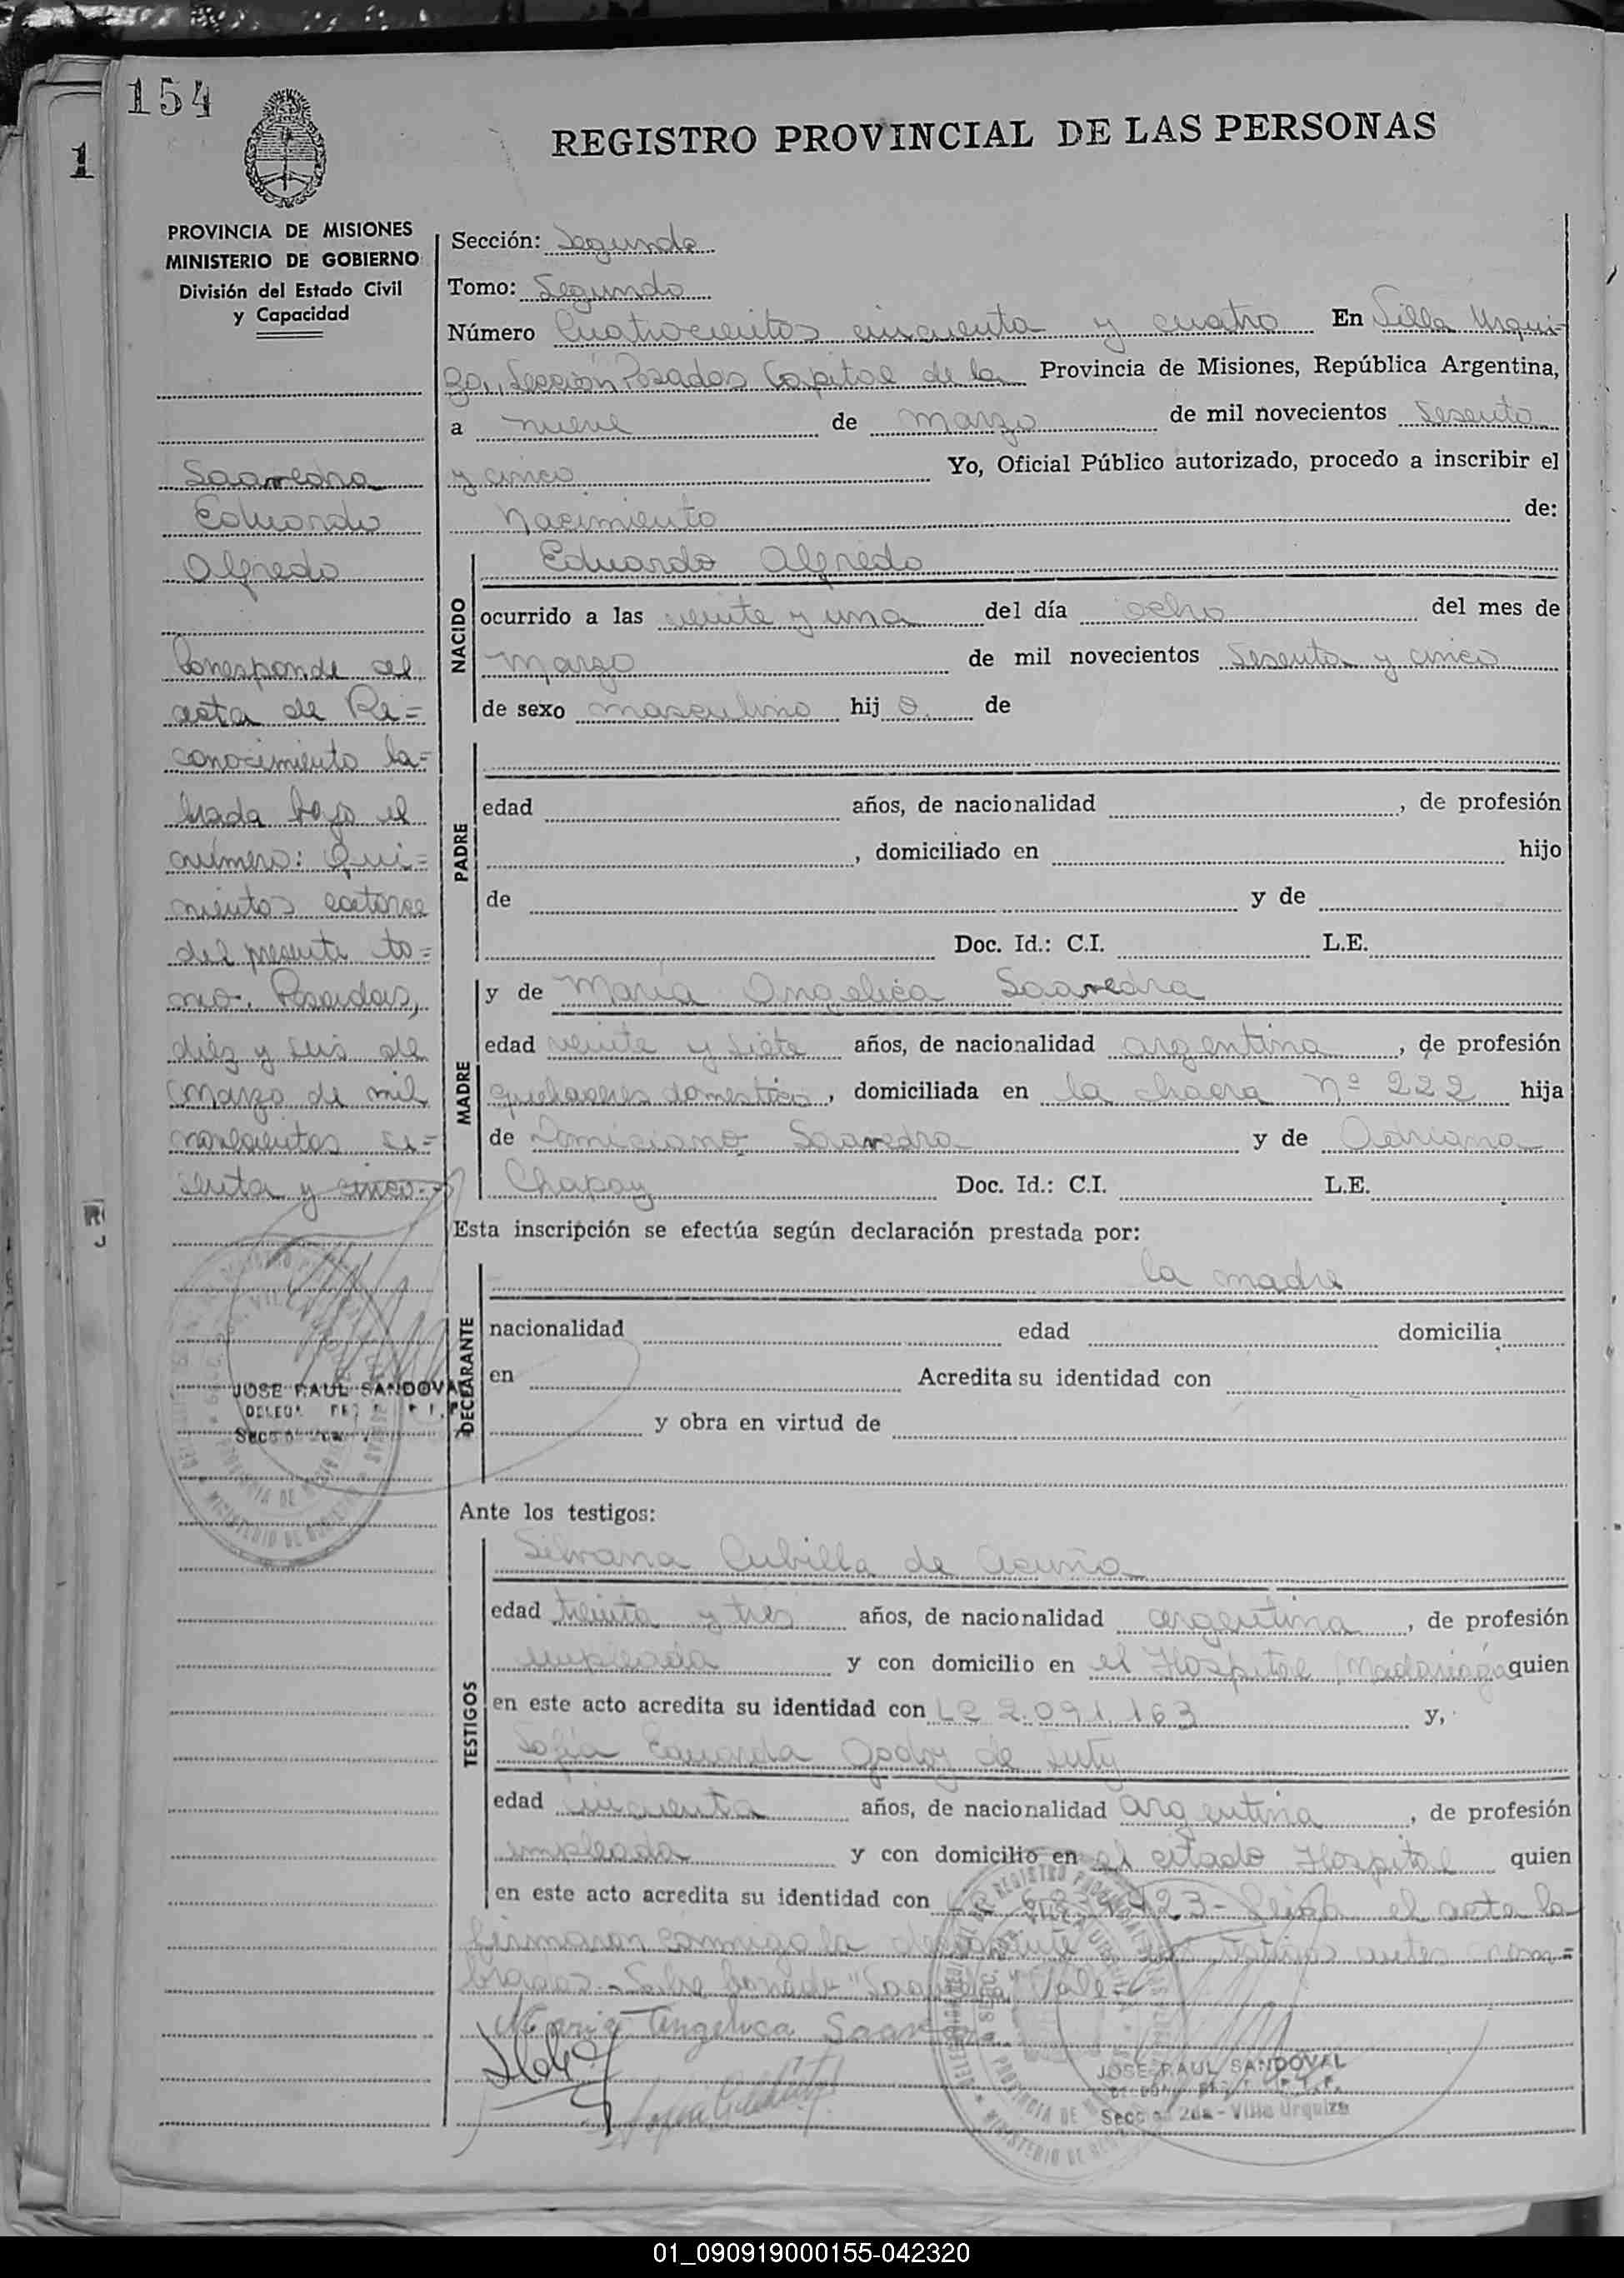 154
1
REGISTRO PROVINCIAL DE LAS PERSONAS
PROVINCIA DE MISIONES
MINISTERIO DE GOBIERNO
División del Estado Civil
y Capacidad
Saavedra
Eduardo
Alfredo
Corresponde al
acta de Re=
conocimiento la=
brada bajo el
número: Qui=
nientos catorce
del presente to=
mo. Posadas,
diez y seis de
marzo de mil
novecientos se=
senta y cinco.-
JOSE RAUL SANDOVAL
Sección: Segunda
Tomo: Segundo
Número Cuatrocientos cincuenta y cuatro En Villa Urqui=
za, Sección Posadas Capital de la Provincia de Misiones, República Argentina,
a nueve de marzo de mil novecientos sesenta
y cinco Yo, Oficial Público autorizado, procedo a inscribir el
Nacimiento de:
NACIDO
Eduardo Alfredo
ocurrido a las veinte y una del día ocho del mes de
marzo de mil novecientos sesenta y cinco
de sexo masculino hij o de
PADRE
edad años, de nacionalidad , de profesión
, domiciliado en hijo
de y de
Doc. Id.: C.I. L.E.
MADRE
y de María Angelica Saavedra
edad veinte y siete años, de nacionalidad argentina , de profesión
quehaceres domesticos , domiciliada en la chacra Nº 222 hija
de Domiciano Saavedra y de Adriana
Chapay Doc. Id.: C.I. L.E.
Esta inscripción se efectúa según declaración prestada por:
DECLARANTE
la madre
nacionalidad edad domicilia
en Acredita su identidad con
y obra en virtud de
Ante los testigos:
TESTIGOS
Silvana Cubilla de Acuña
edad treinta y tres años, de nacionalidad argentina , de profesión
empleada y con domicilio en el Hospital Madariaga quien
en este acto acredita su identidad con LC 2.091.163 y,
Sofia Eduarda Godoy de
edad cincuenta años, de nacionalidad argentina , de profesión
empleada y con domicilio en el citado Hospital quien
en este acto acredita su identidad con 423- Leída el acta la
firmaron conmigo la declarante testigos antes nom=
brados.- Sobre borrado "Saavedra" Vale-
Maria Angelica Saavedra
JOSE RAUL SANDOVAL
Secc 2da - Villa Urquiza
01_090919000155-042320